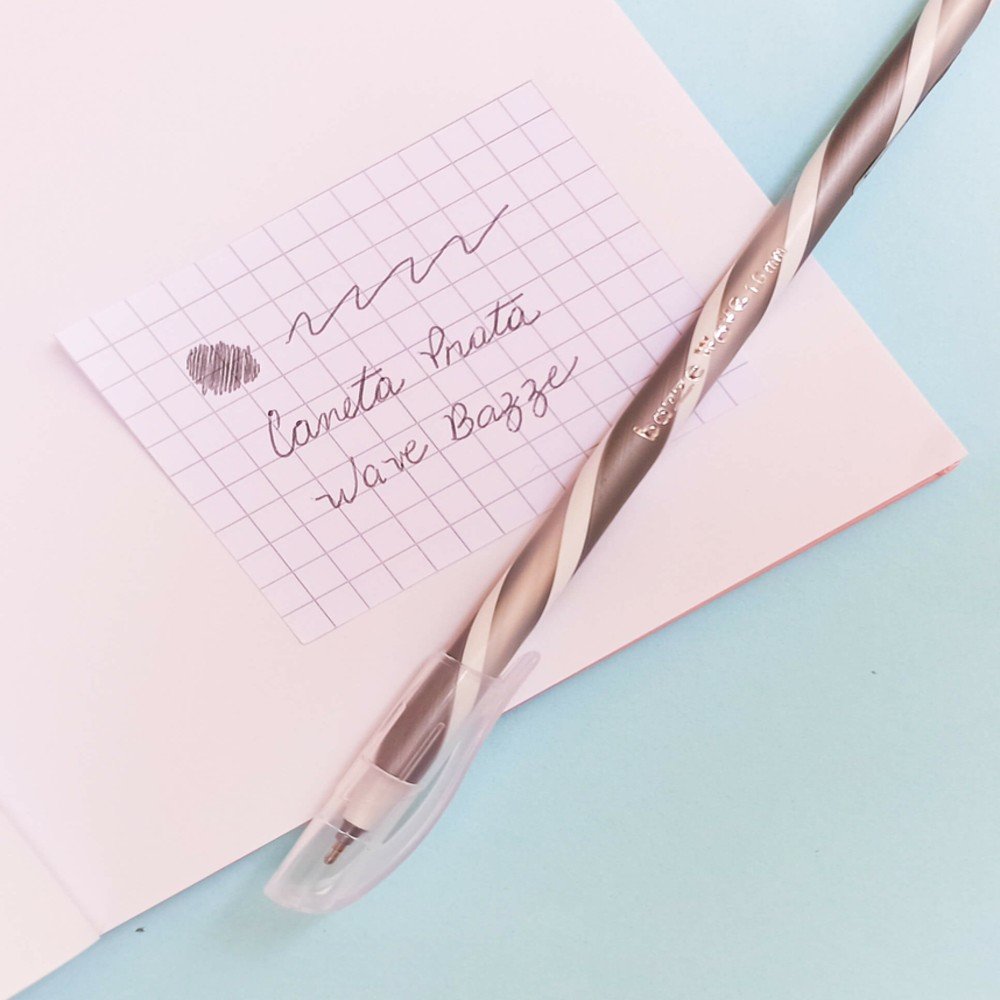 Caneta Prata
Wave Bazze
bazze wave 1.6mm